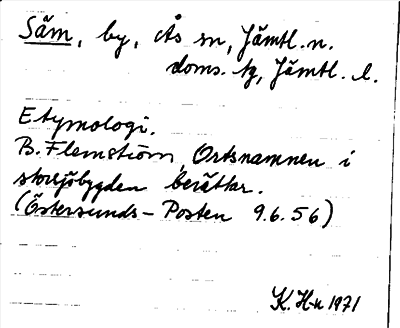 Säm, by, Ås sn, Jämtl. n.
doms. tg, Jämtl. l.
Etymologi.
B. Flemström, Ortsnamnen i
storsjöbygden berättar.
(Östersunds-Posten 9.6.56)
K. H-n 1971